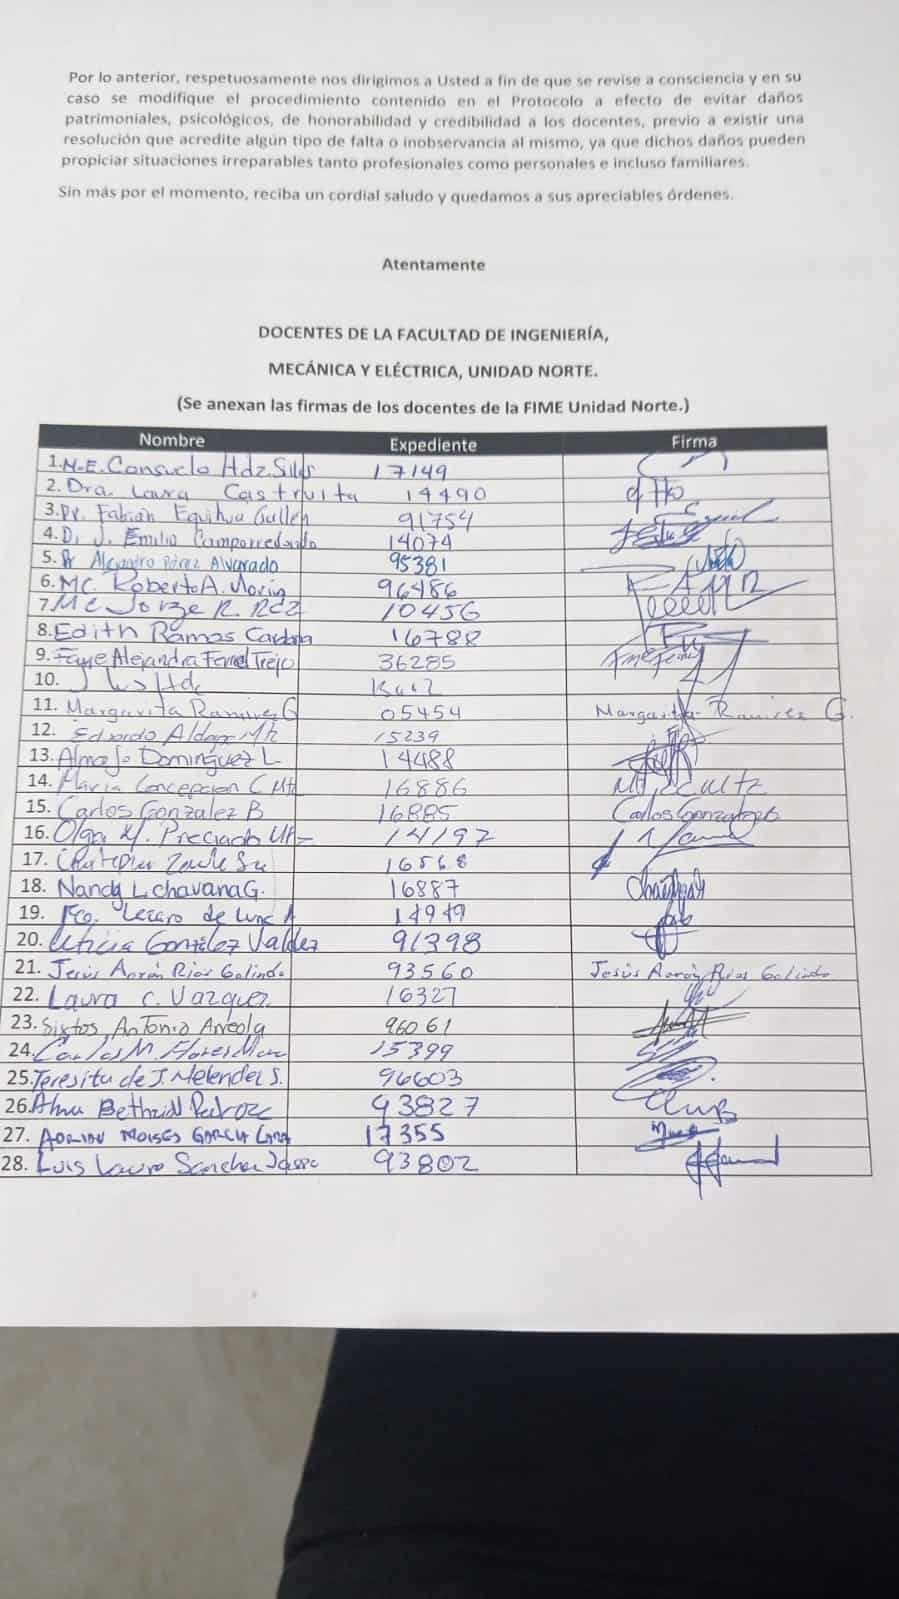 Por lo anterior, respetuosamente nos dirigimos a Usted a fin de que se revise a consciencia y en su
caso se modifique el procedimiento contenido en el Protocolo a efecto de evitar daños
patrimoniales, psicológicos, de honorabilidad y credibilidad a los docentes, previo a existir una
resolución que acredite algún tipo de falta o inobservancia al mismo, ya que dichos daños pueden
propiciar situaciones irreparables tanto profesionales como personales e incluso familiares.
Sin más por el momento, reciba un cordial saludo y quedamos a sus apreciables órdenes.
Atentamente
DOCENTES DE LA FACULTAD DE INGENIERÍA,
MECÁNICA Y ELÉCTRICA, UNIDAD NORTE.
(Se anexan las firmas de los docentes de la FIME Unidad Norte.)
Nombre Expediente Firma
1. M.E. Consuelo Hdz. 17149
2. Dra. Laura Castruita 14490
3. Dr. Fabián Equihua Guillen 91754
4. D. J. Emilio Camporredondo 14074
5. Dr Alejandro Pérez Alvarado 95381
6. MC. Roberto A. 96486
7. MC Jorge R. Rdz 10456
8. Edith Ramos Cardona 16788
9. Faye Alejandra Trejo 36285
10. Hdz
11. Margarita Ramirez G 05454 Margarita Ramirez G.
12. Eduardo 15239
13. Alma Dominguez L 14488
14. Maria Concepcion C 16886
15. Carlos Gonzalez B 16885 Carlos Gonzalez B
16. Olga M. Preciado 14197
17. 16568
18. Nancy L Chavana G. 16887
19. Fco. de Luna A 14949
20. Leticia González Valdez 91398
21. Jesús Aarón Rios Galindo 93560 Jesús Aarón Rios Galindo
22. Laura C. Vazquez 16327
23. Sixtos Antonio Arreola 96061
24. Carlos M. Flores 15399
25. Teresita de J. Melendez S. 96603
26. Alma Pedroza 93827
27. Adrian Moises Garcia 17355
28. Luis Lauro Sanchez 93802